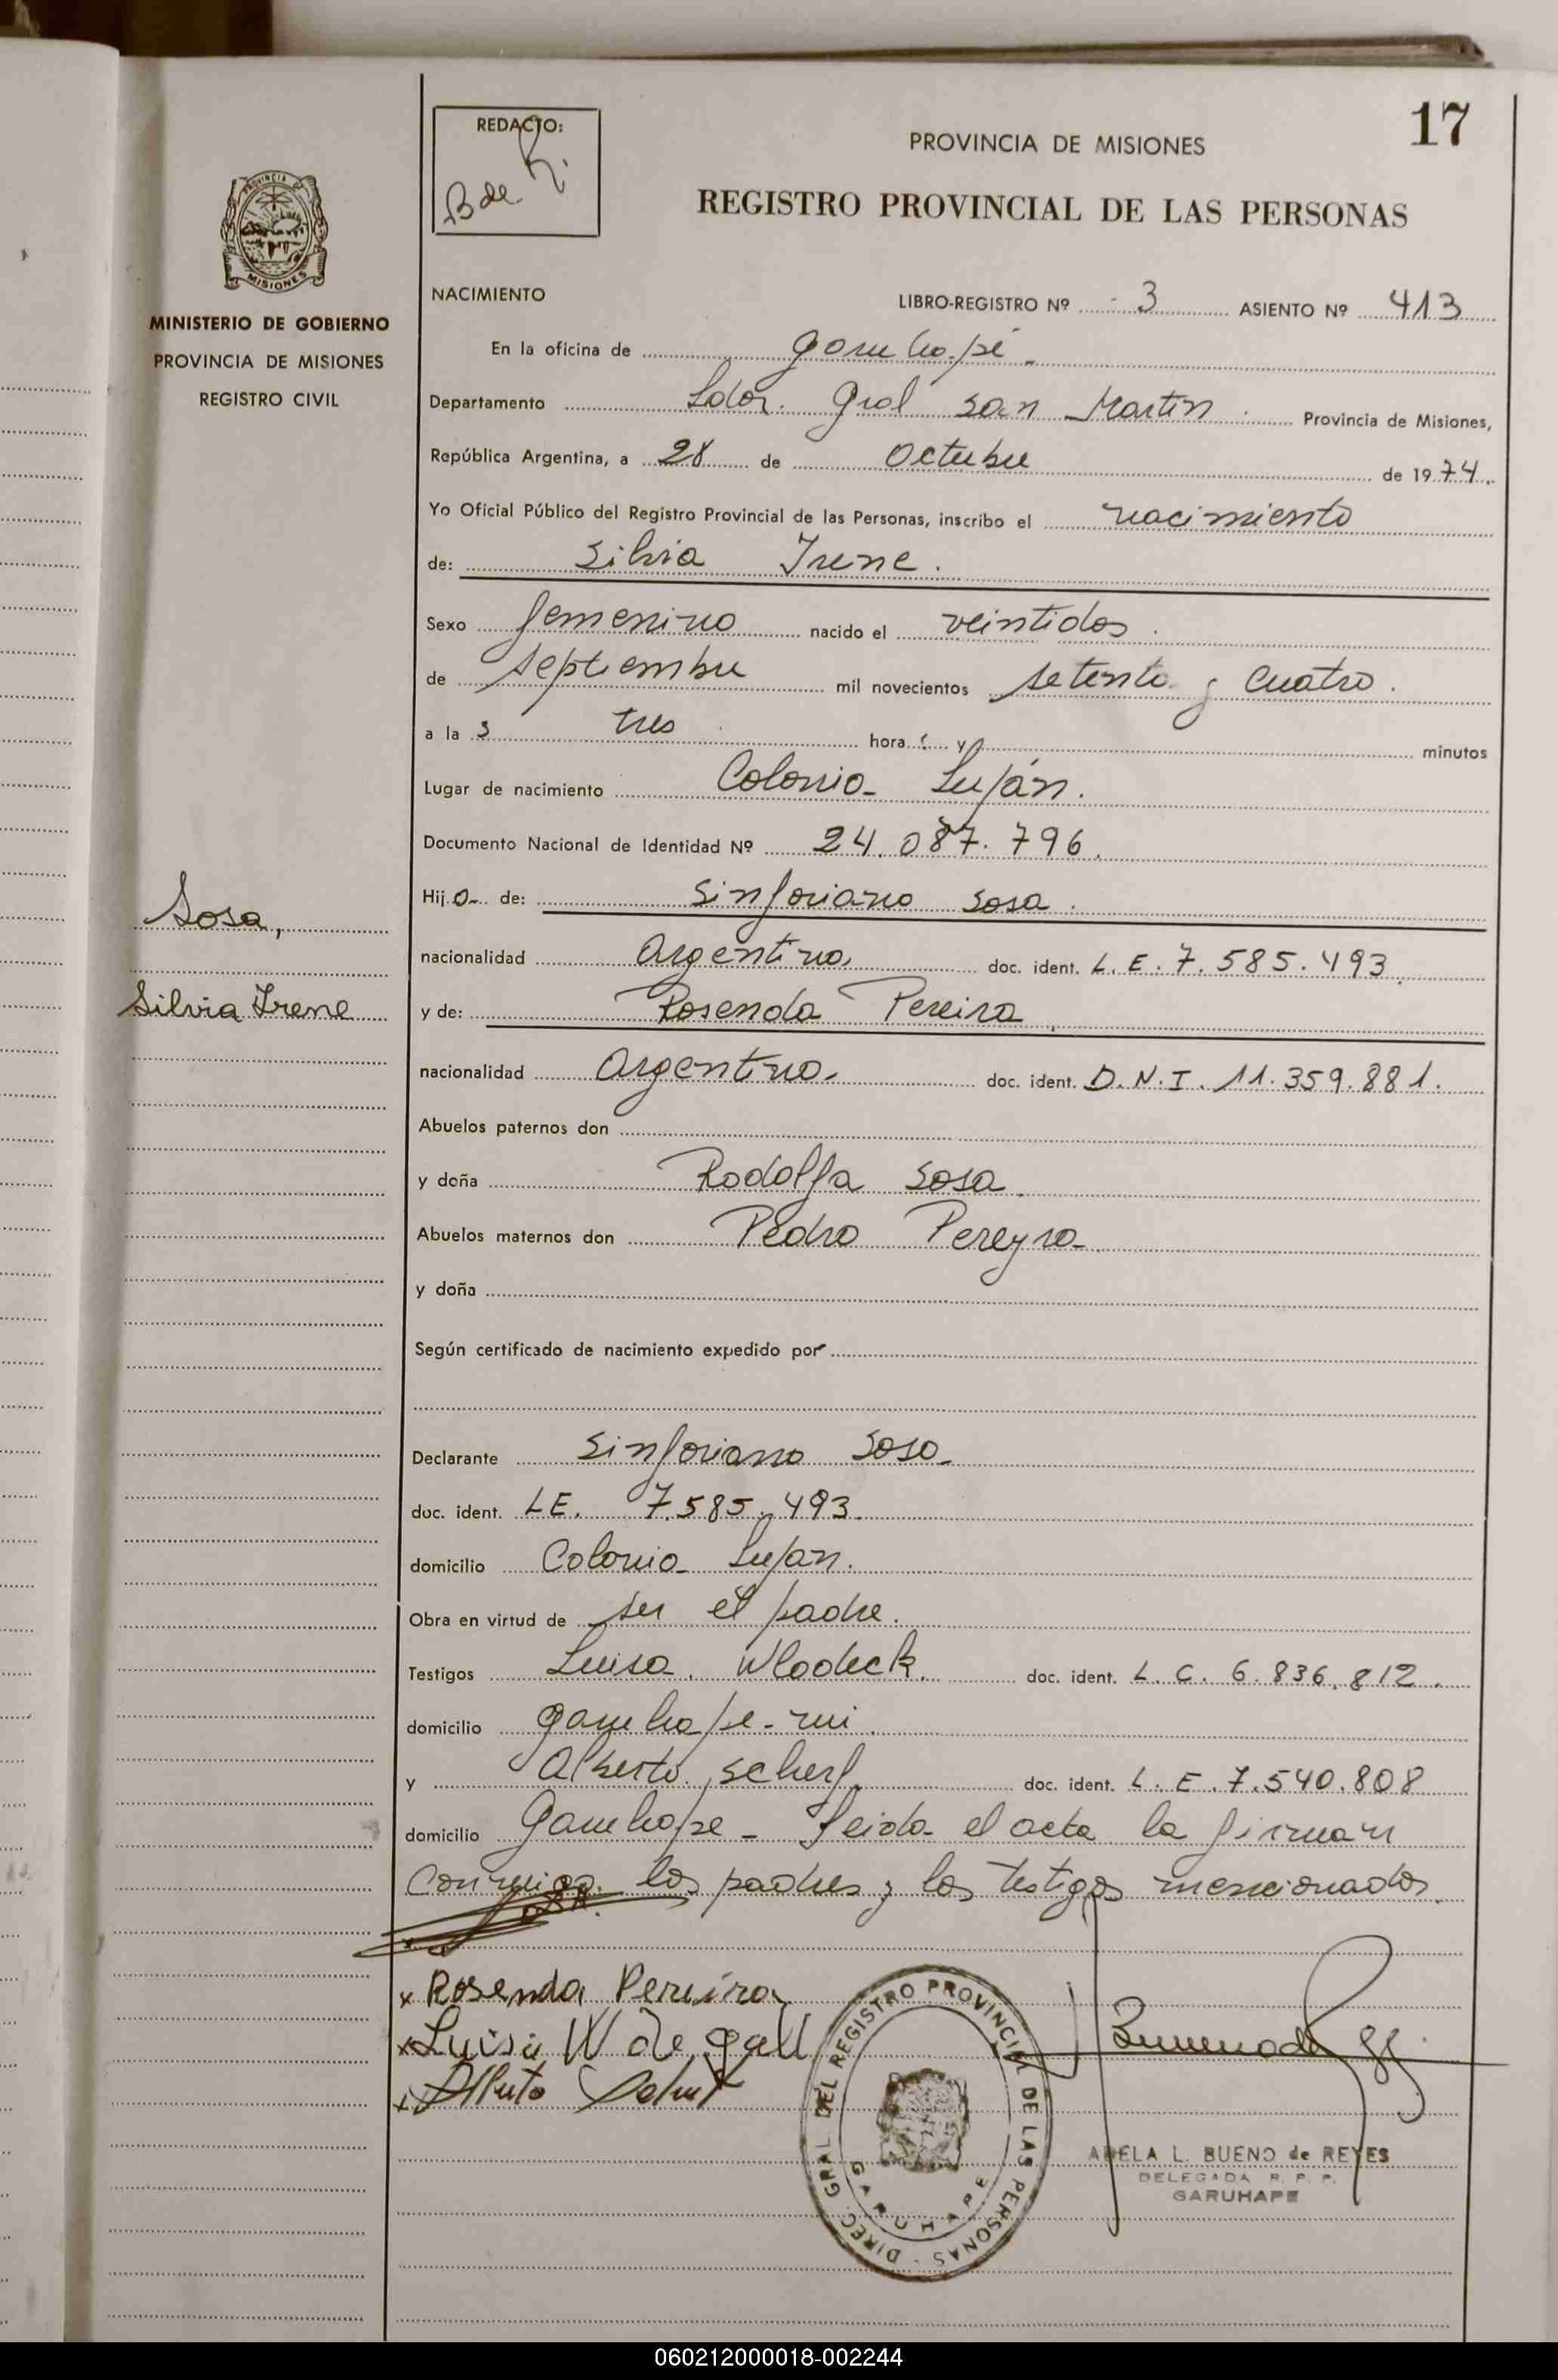 17
REDACTO:
B de R.
PROVINCIA DE MISIONES
REGISTRO PROVINCIAL DE LAS PERSONAS
PROVINCIA DE
MISIONES
MINISTERIO DE GOBIERNO
PROVINCIA DE MISIONES
REGISTRO CIVIL
NACIMIENTO
LIBRO-REGISTRO Nº 3 ASIENTO Nº 413
En la oficina de Garuhapé
Departamento Ldor. Gral San Martin Provincia de Misiones,
República Argentina, a 28 de Octubre de 1974.
Yo Oficial Público del Registro Provincial de las Personas, inscribo el nacimiento
de: Silvia Irene.
Sexo femenino nacido el veintidos
de septiembre mil novecientos setenta y cuatro.
a la s tres hora s y minutos
Lugar de nacimiento Colonia Luján.
Documento Nacional de Identidad Nº 24.087.796.
Hija de: Sinforiano Sosa.
nacionalidad Argentina doc. ident. L.E. 7.585.493.
y de: Rosenda Pereira
nacionalidad Argentina doc. ident. D.N.I. 11.359.881.
Abuelos paternos don
y doña Rodolfa Sosa.
Abuelos maternos don Pedro Pereyra
y doña
Según certificado de nacimiento expedido por
Declarante Sinforiano Sosa
doc. ident. LE. 7.585.493.
domicilio Colonia Luján.
Obra en virtud de ser el padre.
Testigos Luisa Wlodeck. doc. ident. L.C. 6.836.812.
domicilio Garuhape-mi.
y Alberto Scherf doc. ident. L.E. 7.540.808
domicilio Garuhape - Leida el acta la firman
conmigo los padres y los testigos mencionados.
Sosa,
Silvia Irene
x Rosenda Pereira
x Luisa W de gall
x Alberto
DIREC. GRAL DEL REGISTRO PROVINCIAL DE LAS PERSONAS
GARUHAPE
ADELA L. BUENO de REYES
DELEGADA R. P. P.
GARUHAPE
060212000018-002244